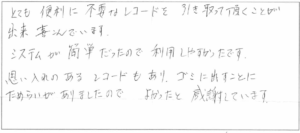 とても 便利に 不要な レコードを 引き取って頂くことが
出来 喜んでいます。
システムが 簡単だったので 利用しやすかったです。
思い入れのある レコードもあり、ゴミに出すことに
ためらいがありましたので よかったと 感謝しています。